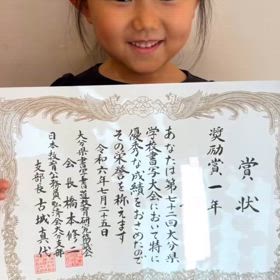 賞状
奨励賞 一年
あなたは第七十二回大分県
学校書写大会において特に
優秀な成績をおさめたので
その栄誉を称えます
令和六年七月二十五日
大分県書写書道教育研究協議会
会長 橋本修二
日本教育公務員弘済会大分支部
支部長 古城真代